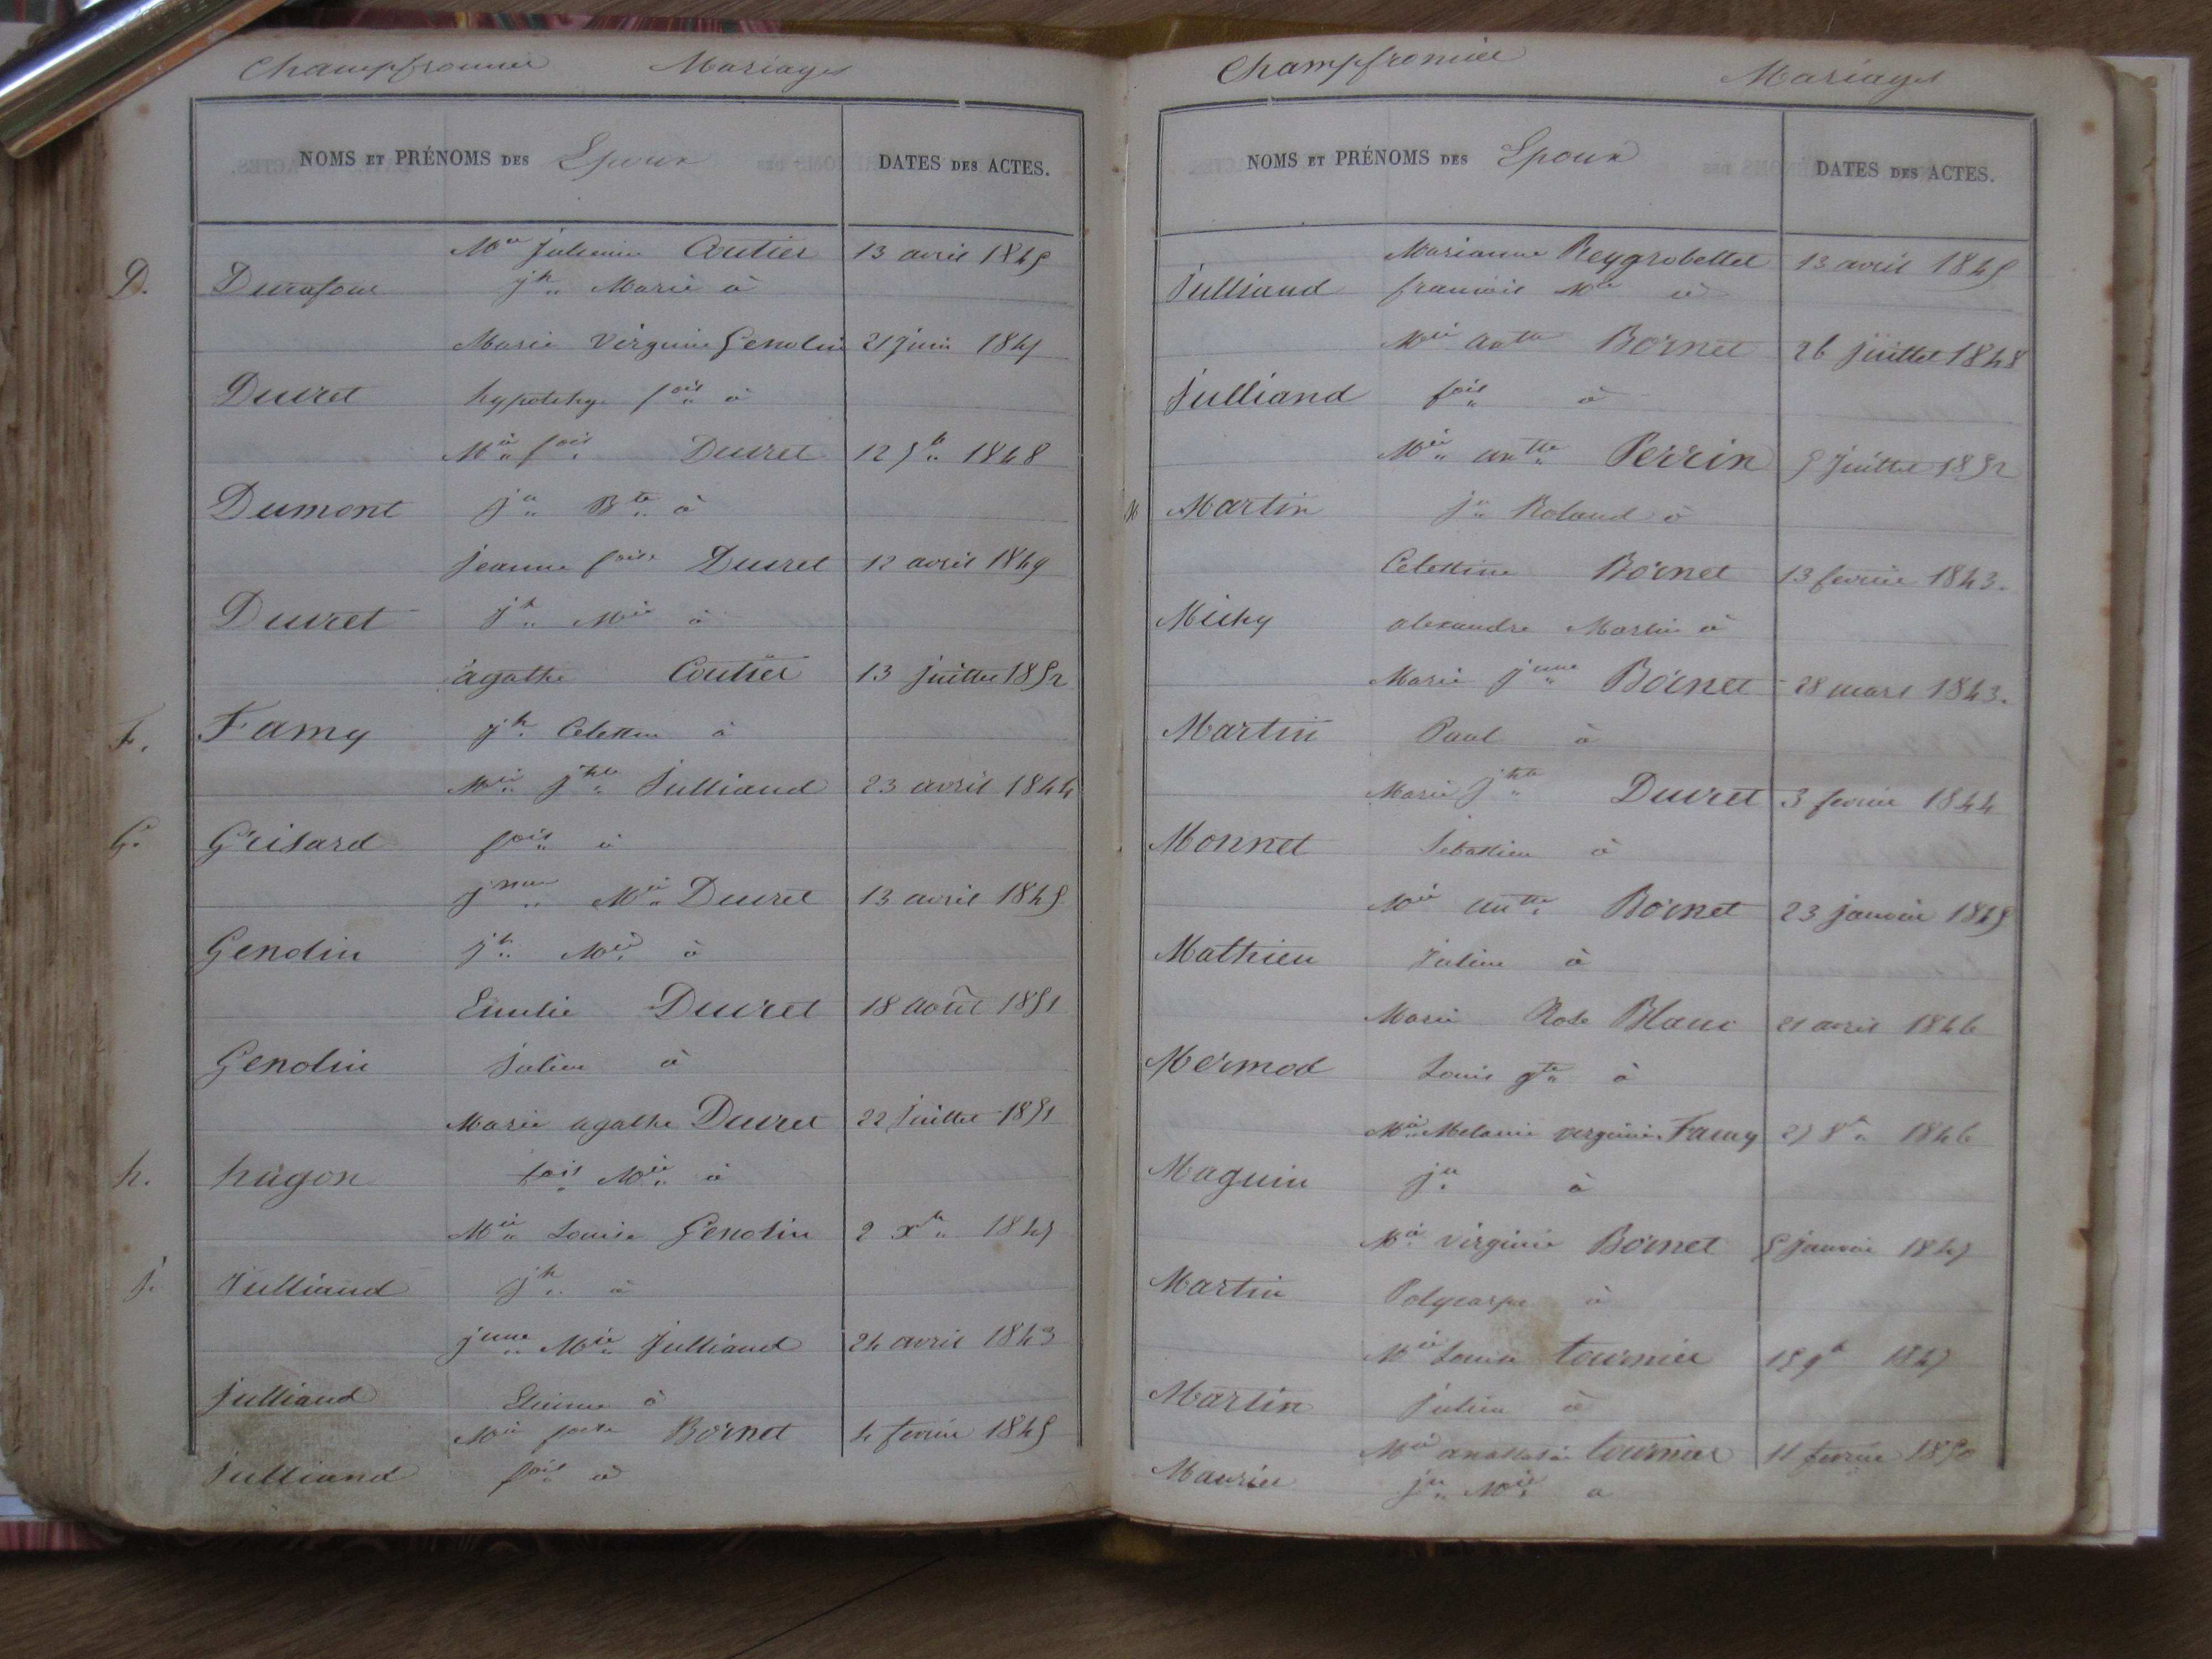 Champfromier Mariages
NOMS ET PRÉNOMS DES Epoux DATES DES ACTES.
Mie Julienne Coutier 13 avril 1845
D. Durafour jh Marie à
Marie Virginie Genolin 21 juin 1847
Ducret hypolithe fois à
Mie foise Ducret 12 9bre 1848
Dumont jn Bte à
jeanne foise Ducret 12 avril 1849
Ducret jh Mie à
agathe Coutier 13 juillet 1852
F. Famy jh Celestin à
Mie jhte Julliand 23 avril 1844
G. Grisard fois à
jnne Mie Ducret 13 avril 1845
Genolin jh Mie à
Emelie Ducret 18 août 1851
Genolin Julien à
Marie agathe Ducret 22 juillet 1851
h. hugon fois Mie à
Mie Louise Genolin 2 Xbre 1847
j. Julliand jh à
jnne Mie Julliand 24 avril 1843
Julliand Etienne à
Mie foise Bornet 4 fevrier 1845
Julliand fois à
Champfromier Mariages
NOMS ET PRÉNOMS DES Epoux DATES DES ACTES.
Marianne Reygrobellet 13 avril 1845
Julliand francois Mie à
Mie antte Bornet 26 juillet 1848
Julliand fois à
Mie antte Perrin 5 juillet 1852
M Martin jn Roland à
Celestine Bornet 13 fevrier 1843.
Michy alexandre Martin à
Marie jnne Bornet 28 mars 1843.
Martin Paul à
Marie jhte Ducret 3 fevrier 1844
Monnet Sebastien à
Mie antte Bornet 23 janvier 1845
Mathieu Julien à
Marie Rose Blanc 21 avril 1846
Mermod Louis à
Mie Melanie virginie Famy 27 8bre 1846
Maguin jn à
Mie virginie Bornet 5 janvier 1847
Martin Polycarpe à
Mie Louise tournier 15 9bre 1847
Martin Julien à
Mie anastasie tournier 11 fevrier 1850
Maurier jn Mie a